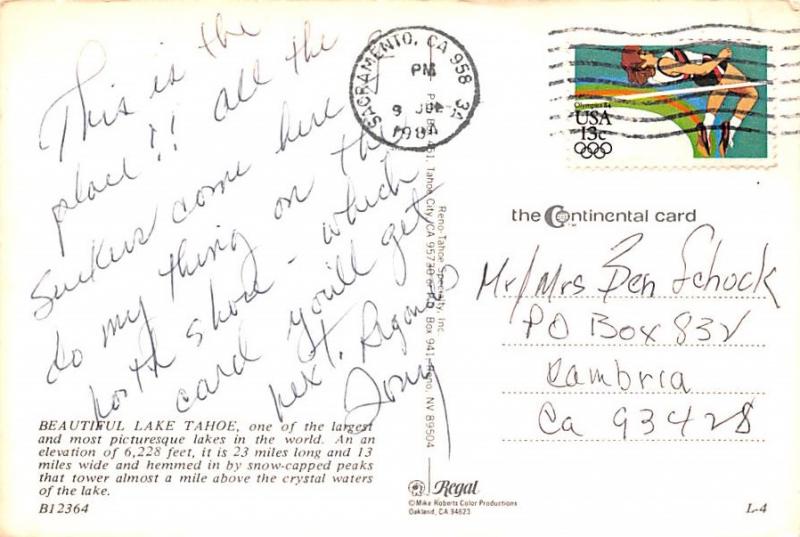 This is the
place!! all the
suckers come here &
do my thing on the
north shore - which
card you'll get
next.
Tony
BEAUTIFUL LAKE TAHOE, one of the largest
and most picturesque lakes in the world. An an
elevation of 6,228 feet, it is 23 miles long and 13
miles wide and hemmed in by snow-capped peaks
that tower almost a mile above the crystal waters
of the lake.
B12364
SACRAMENTO, CA 958
PM
9
1984
Reno-Tahoe Specialty, Inc.
Tahoe City, CA 95730 or P.O. Box 941, Reno, NV 89504
Olympics 84
USA
13c
the Continental card
Mr/Mrs Ben Schock
PO Box 832
Cambria
Ca 93428
Regal
©Mike Roberts Color Productions
Oakland, CA 94623
L-4